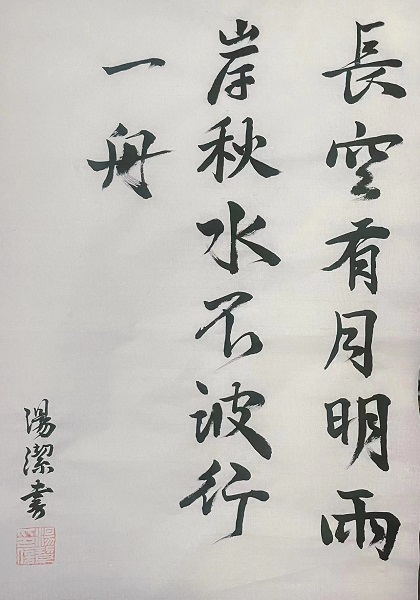 長空有月明兩
岸秋水不波行
一舟
湯潔書